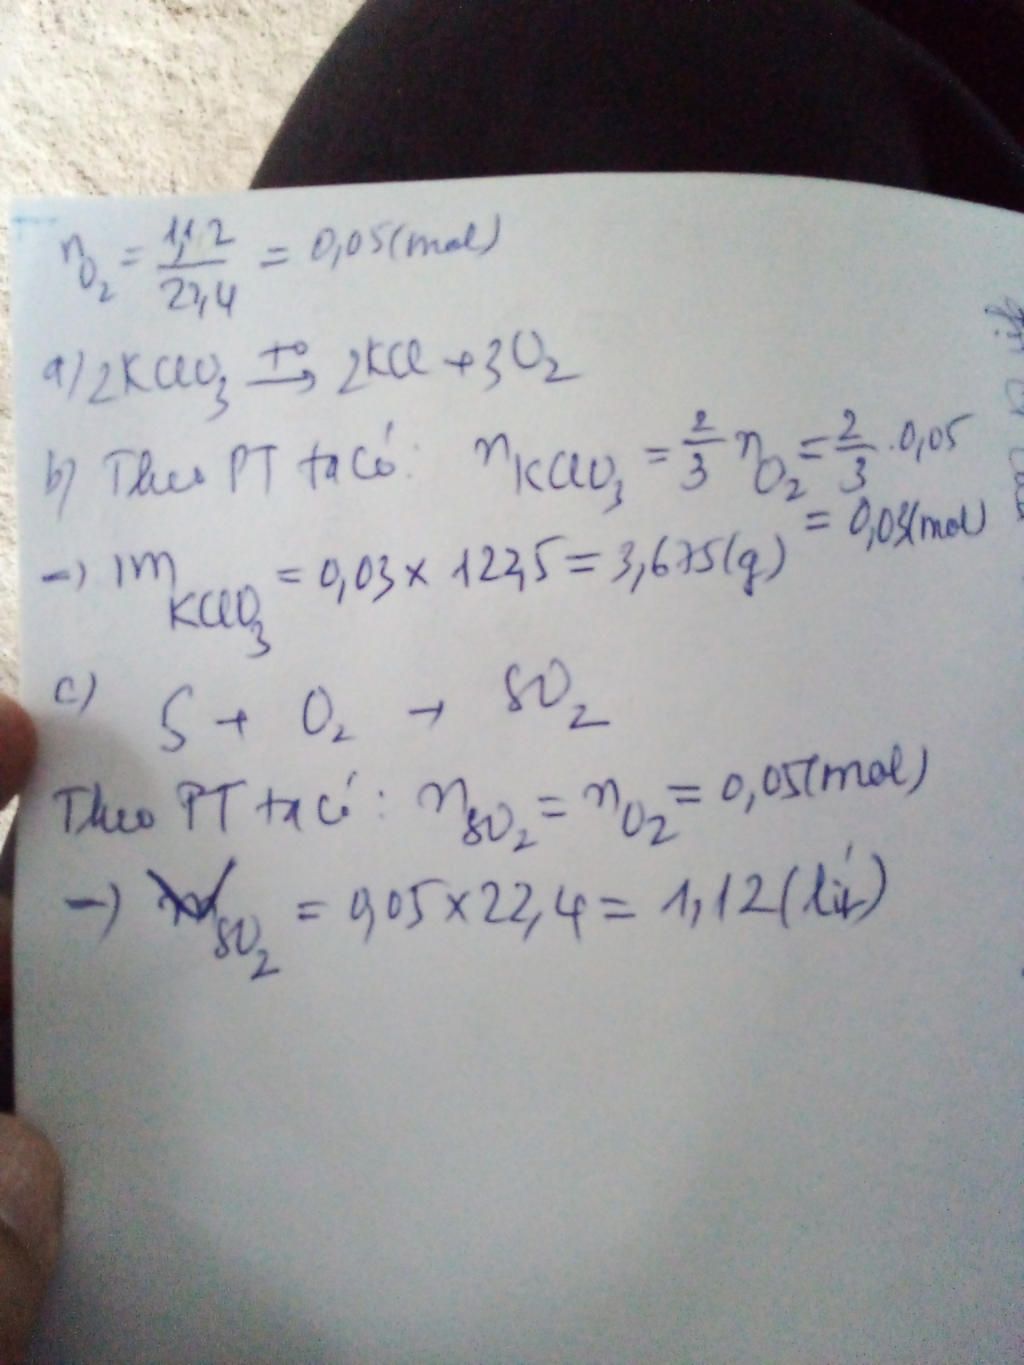 nO₂ = 1,12/22,4 = 0,05(mol)
a) 2KClO₃ —t°→ 2KCl + 3O₂
b) Theo PT ta có: nKClO₃ = 2/3 nO₂ = 2/3 . 0,05
= 0,03(mol)
→ mKClO₃ = 0,03 × 122,5 = 3,675(g)
c) S + O₂ → SO₂
Theo PT ta có: nSO₂ = nO₂ = 0,05(mol)
→ SO₂ = 0,05 × 22,4 = 1,12 (lít)